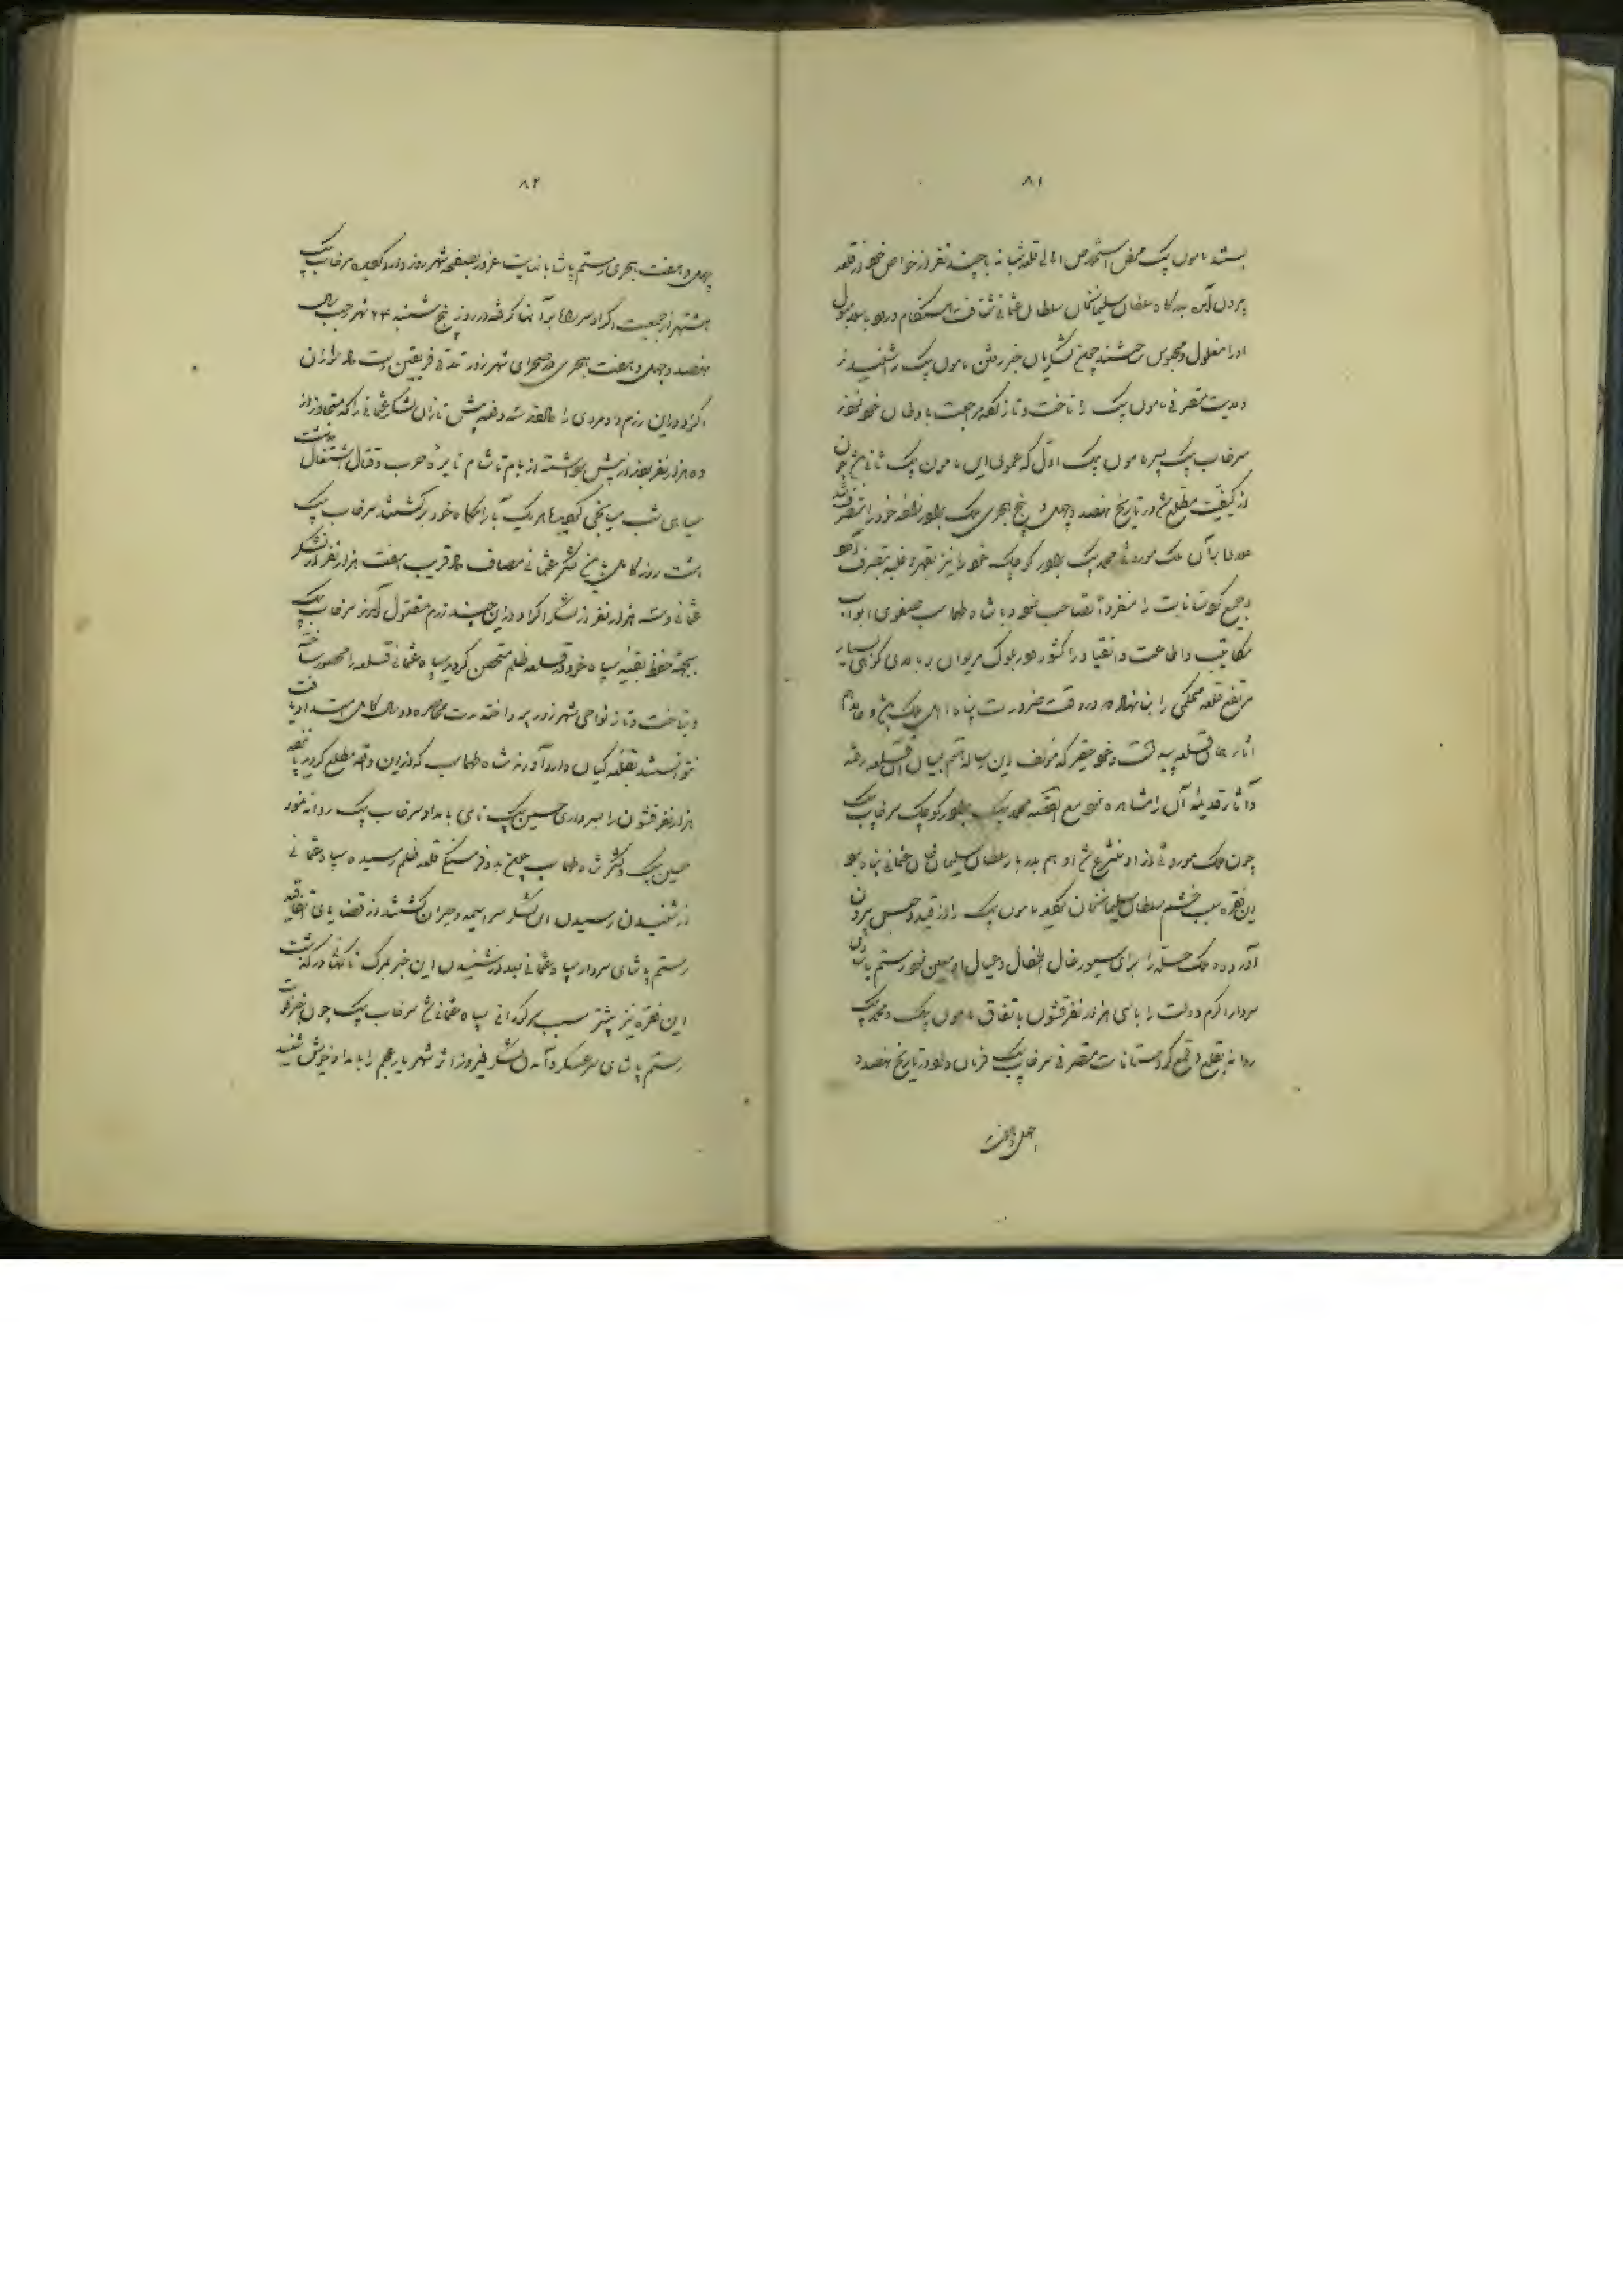 ۸۱
بستند مامون بیک محض استخلاص اهالی قلعه شبانه با چند نفر از خواص خود از قلعه
بیرون آمده بدرگاه سلطان سلیمانخان سلطان عثمانی شتافت هنگام ورود باسلامبول
او را مغلول و محبوس داشتند چون لشگریان خبر رفتن مامون بیک را شنیدند
ولایت متصرفی مامون بیک را تاخت و تاز کرده مراجعت باوطان خود نمودند
سرخاب بیک پسر مامون بیک اول که عموی این مامون بیک ثانی است چون
از کیفیت مطلع شد در تاریخ نهصد و چهل و پنج هجری ملک برادرزاده خود را متصرف شد
علاوه بر آن ملک موروثی محمد بیک برادر کوچک خود را نیز بقهر و غلبه تصرف نمود
و جمیع کردستانات را منفرداً تصاحب نمود و با شاه طهماسب صفوی ابواب
مکاتیب و اطاعت و انقیاد را گشود در بلوک مریوان در بالای کوهی بسیار
مرتفع قلعه محکمی را بنا نهاد که در وقت ضرورت پناه اهل ملک باشد
آثار های قلعه پیداست و خود حقیر که مؤلف این رساله هستم بمیان آن قلعه رفته
و آثار قدیمه آن را مشاهده نموده‌ام القصه محمد بیک برادر کوچک سرخاب بیک
چون ملک موروثی از او منتزع شد او هم بدربار سلطان سلیمان خان عثمانی پناه برد
این فقره سبب خشم سلطان سلیمانخان گردید مامون بیک را از قید و حبس بیرون
آورده ملک حله را برای سیورغال اطفال و عیال او معین نمود رستم پاشای
سردار اکرم دولت را با سی هزار نفر قشون باتفاق مامون بیک و محمد بیک
روانه بقلع و قمع کردستانات متصرفی سرخاب بیک فرمان داد در تاریخ نهصد و
چهل و هفت
۸۲
چهل و هفت هجری رستم پاشا با نهایت غرور بصفحه شهرزور وارد گردید سرخاب بیک
هشت هزار جمعیت اکراد سر راه بر آنها گرفته در روز پنج شنبه ۲۴ شهر رجب سال
نهصد و چهل و هفت هجری در صحرای شهرزور تلاقی فریقین دست داد سواران
اکراد در این رزم داد مردی را داده سه دفعه پیش تازان لشکر عثمانی را که متجاوز از
ده هزار نفر بودند از پیش برداشته از بام تا شام نایره حرب و قتال اشتغال داشت
سیاهی شب میانجی گردید هر یک بآرامگاه خود برگشتند سرخاب بیک
هشت روز کامل با لشکر عثمانی مصاف داد قریب هفت هزار نفر از لشکر
عثمانی و سه هزار نفر از لشکر اکراد در این چند رزم مقتول گردیدند سرخاب بیک
بجهة حفظ بقیه سپاه خود در قلعه ظلم متحصن گردید سپاه عثمانی قلعه را محصور ساخته
و بتاخت و تاز نواحی شهرزور پرداخته مدت محاصره دو سال کامل امتداد یافت
نتوانستند بقلعه گیان وارد آورند شاه طهماسب که از این وقعه مطلع گردید پانصد
هزار نفر قشون را بسرداری حسین بیک نامی بامداد سرخاب بیک روانه نمود
حسین بیک و لشکر شاه طهماسب چون بدو فرسنگی قلعه ظلم رسید سپاه عثمانی
از شنیدن رسیدن این لشکر سراسیمه و حیران گشتند از قضایای اتفاقیه
رستم پاشای سردار سپاه عثمانی بعد از شنیدن این خبر بمرگ ناگهانی درگذشت
این فقره نیز بیشتر سبب سرگردانی سپاه عثمانی شد سرخاب بیک چون خبر فوت
رستم پاشای سرعسکر و آمدن لشکر فیروز اثر شهریار عجم را بامداد خویش شنید